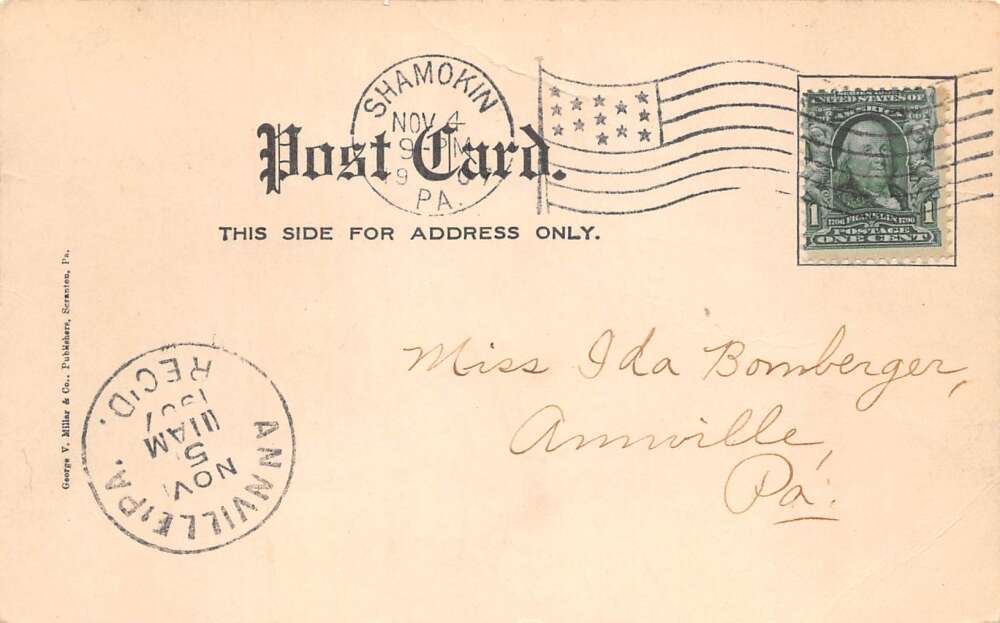 SHAMOKIN
NOV 4
9-PM
PA.
Post Card.
THIS SIDE FOR ADDRESS ONLY.
UNITED STATES OF
AMERICA
1 1790 FRANKLIN 1790 1
POSTAGE
ONE CENT
George V. Millar & Co., Publishers, Scranton, Pa.
Miss Ida Bomberger,
Annville,
Pa.
ANNVILLE, PA.
NOV
5
11AM
1907
REC'D.